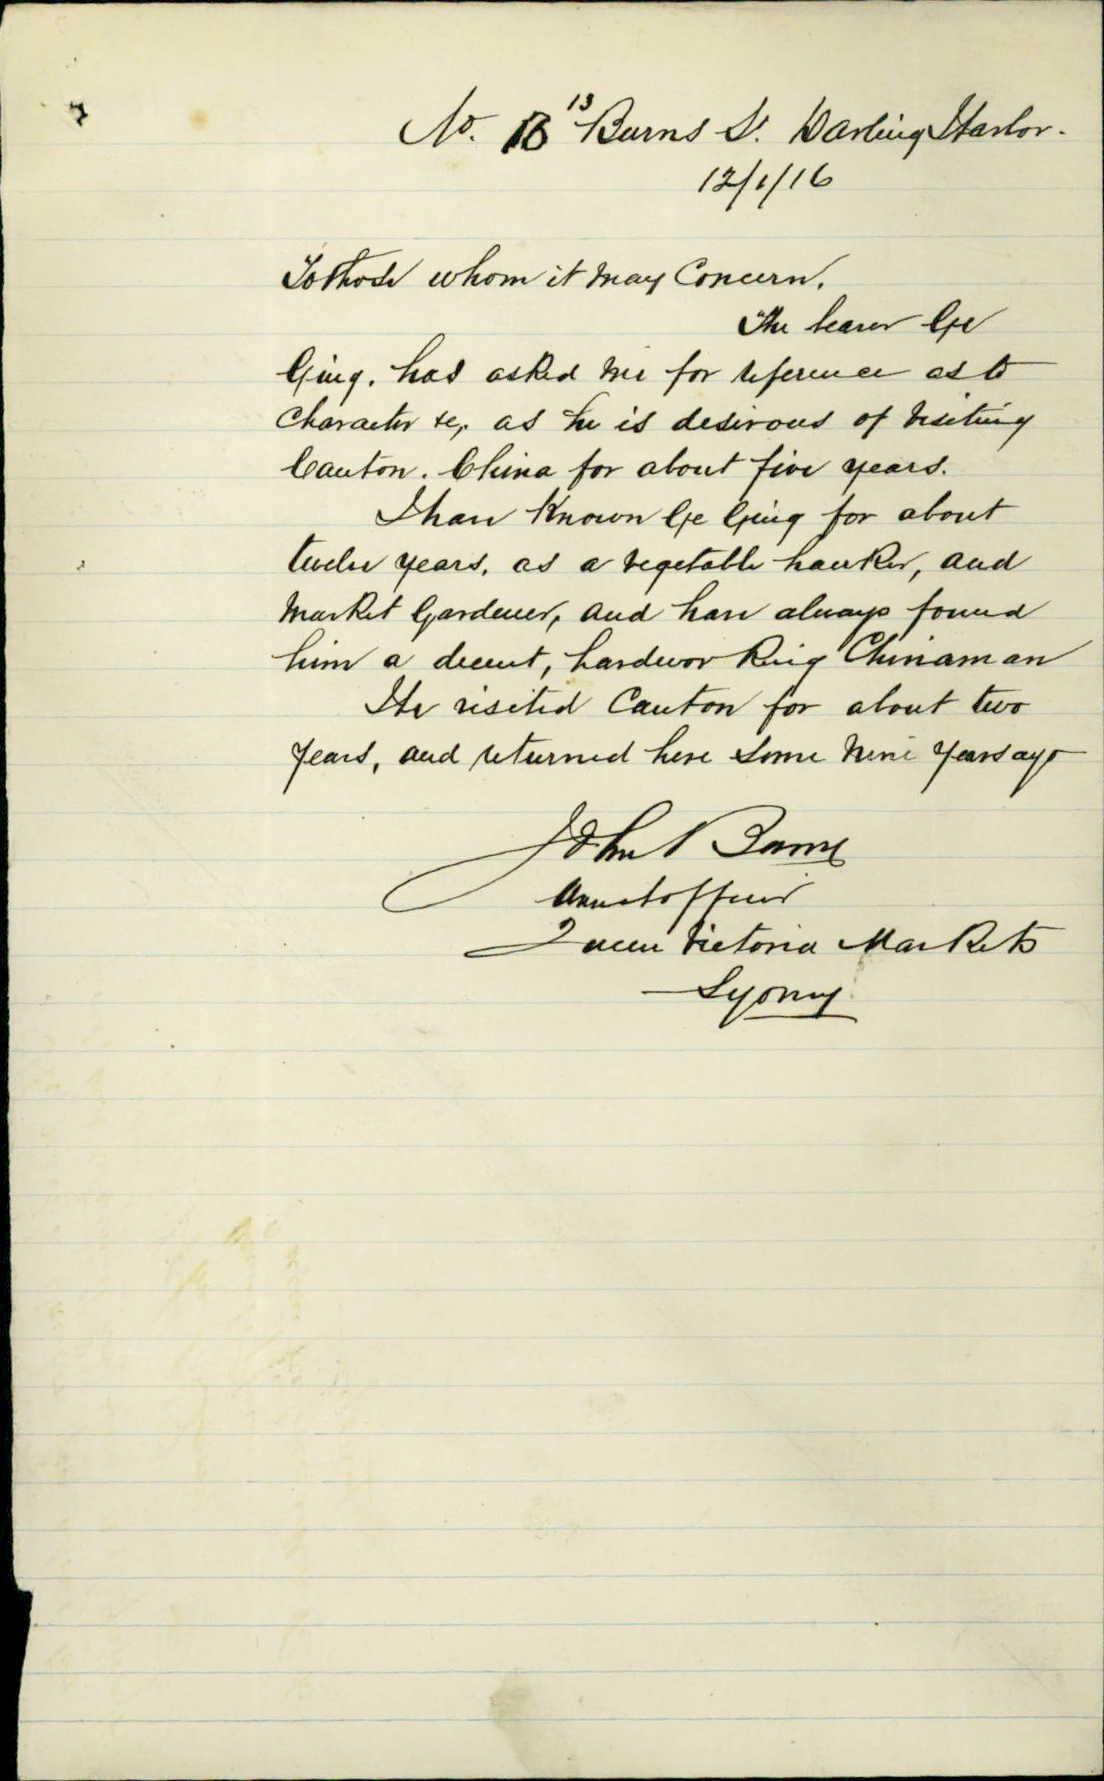 No. 13 Burns St. Darling Harbor.
12/1/16
To those whom it may Concern.
The bearer Ge
Ging. has asked me for reference as to
Character &c, as he is desirous of visiting
Canton. China for about five years.
I have Known Ge Ging for about
twelve years, as a vegetable hawker, and
Market Gardener, and have always found
him a decent, hardworking Chinaman
He visited Canton for about two
years, and returned here some nine years ago
John
Queen Victoria Markets
Sydney